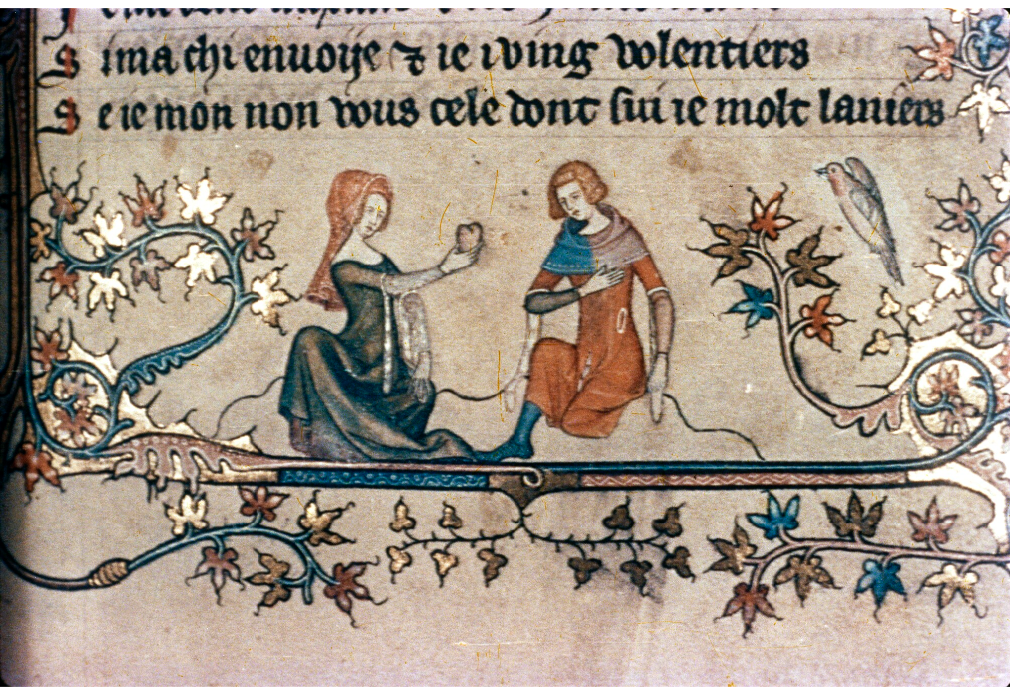 S i ma chi enuoije ⁊ ie i ving volentiers
S e ie mon non vous cele dont ſui ie molt laniers